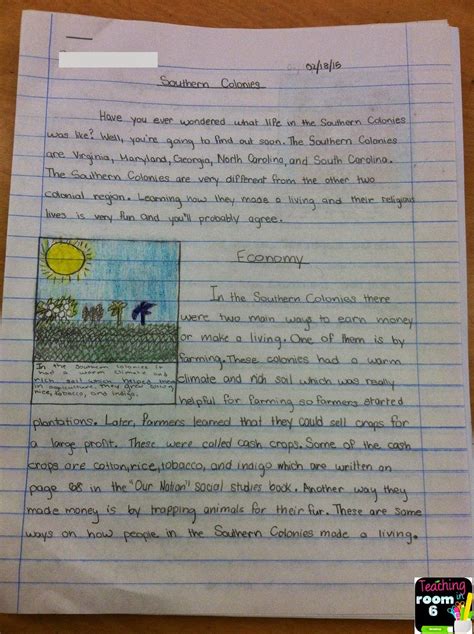 02/18/15
Southern Colonies
Have you ever wondered what life in the Southern Colonies
was like? Well, you're going to find out soon. The Southern Colonies
are Virginia, Maryland, Georgia, North Carolina, and South Carolina.
The Southern Colonies are very different from the other two
colonial region. Learning how they made a living and their religious
lives is very fun and you'll probably agree.
Economy
In the Southern Colonies there
were two main ways to earn money
or make a living. One of them is by
farming. These colonies had a warm
climate and rich soil which was really
helpful for farming so farmers started
In the Southern Colonies
had a warm climate and
rich soil which helped
in agriculture. They grew
rice, tobacco, and indigo.
plantations. Later, farmers learned that they could sell crops for
a large profit. These were called cash crops. Some of the cash
crops are cotton, rice, tobacco, and indigo which are written on
page in the "Our Nation" social studies book. Another way they
made money is by trapping animals for their fur. These are some
ways on how people in the Southern Colonies made a living.
Teaching
in
room
6